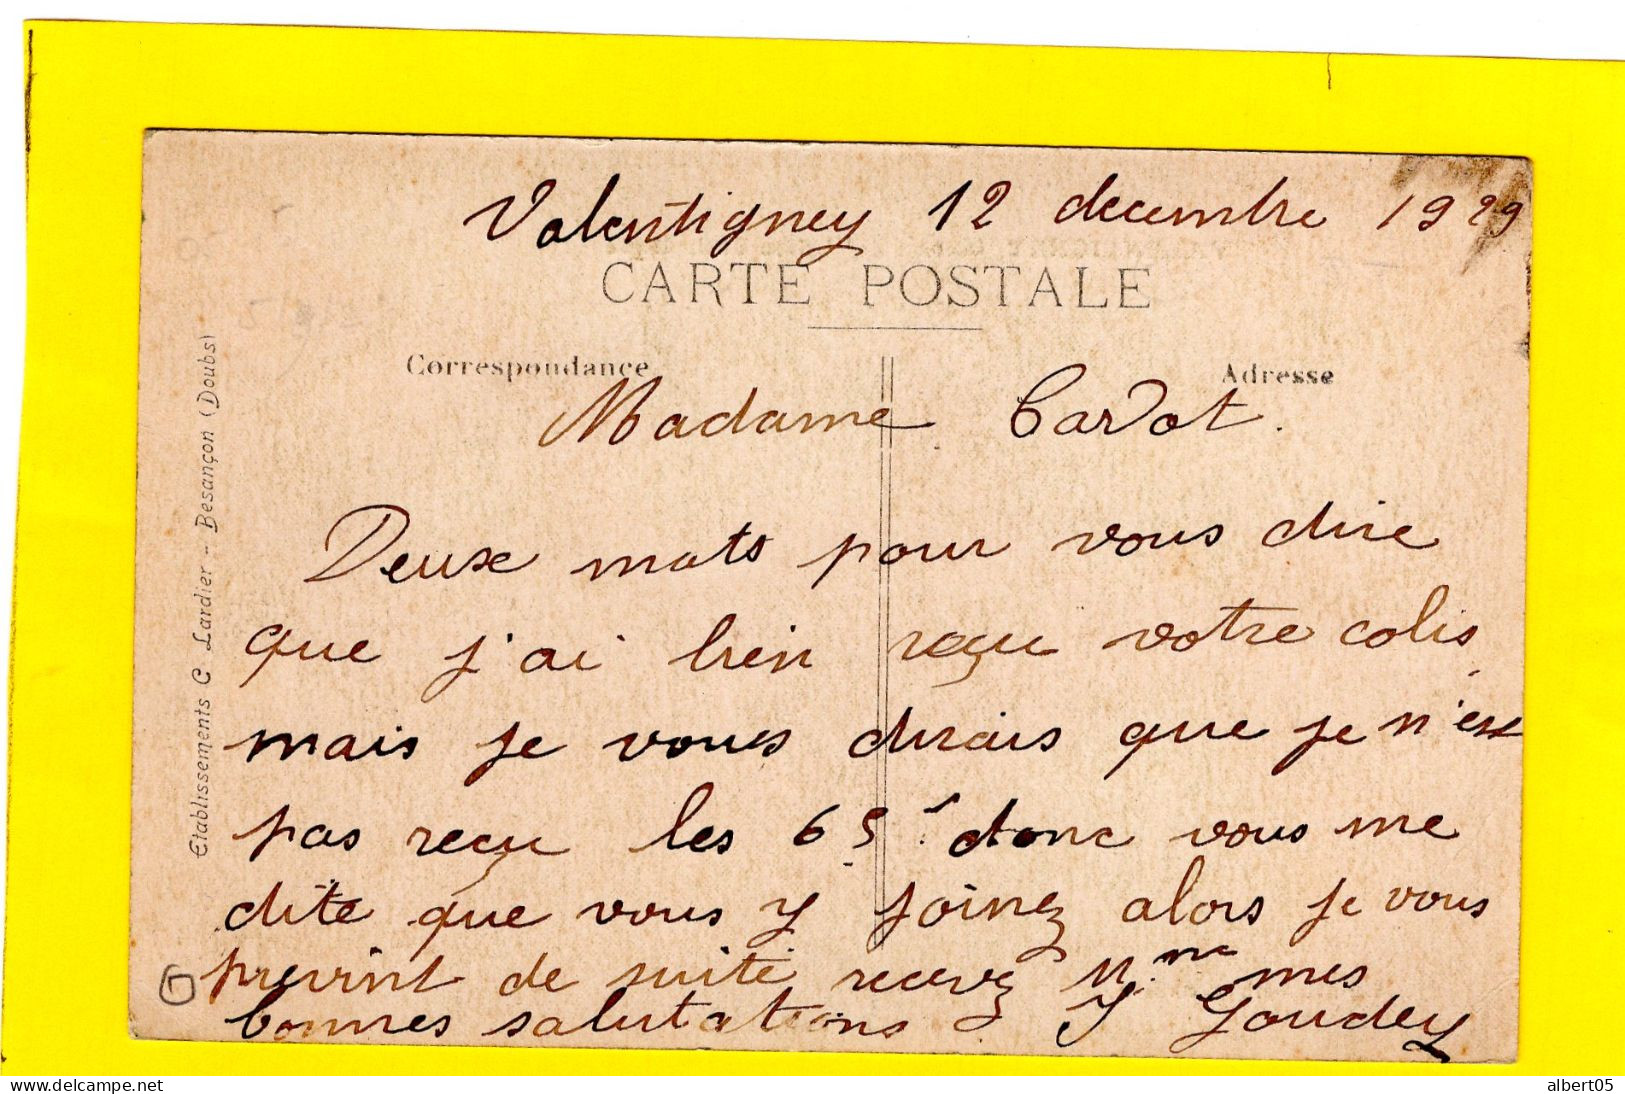 Valentigney 12 decembre 1929
CARTE POSTALE
Correspondance
Adresse
Madame Cardot.
Deux mots pour vous dire
que j'ai bien reçu votre colis
mais je vous dirais que je n'est
pas reçu les 65 f donc vous me
dite que vous y joinez alors je vous
prevint de suite recevez Mme mes
bonnes salutations. Y Goudey
Etablissements C Lardier - Besançon (Doubs)
albert05